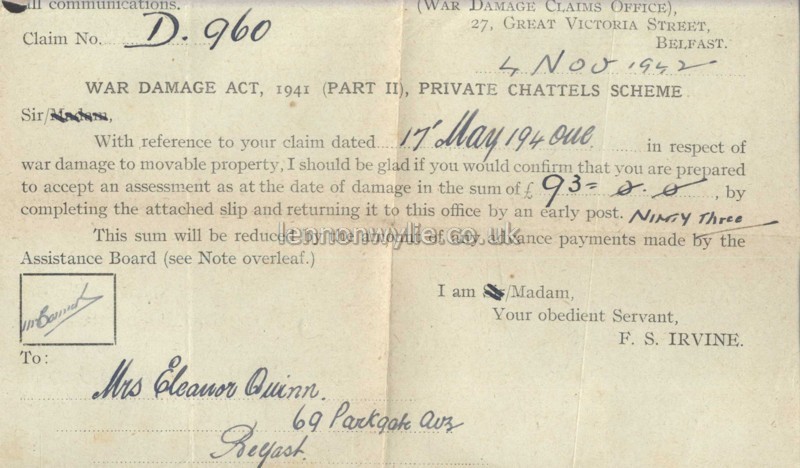 all communications.
(War Damage Claims Office),
27, Great Victoria Street,
Belfast.
Claim No. D. 960
4 Nov 1942
WAR DAMAGE ACT, 1941 (PART II), PRIVATE CHATTELS SCHEME
Sir/Madam,
With reference to your claim dated 17' May 194one in respect of
war damage to movable property, I should be glad if you would confirm that you are prepared
to accept an assessment as at the date of damage in the sum of £ 93= 0. 0, by
completing the attached slip and returning it to this office by an early post. Ninty Three
This sum will be reduced by the amount of any advance payments made by the
Assistance Board (see Note overleaf.)
lennonwylie.co.uk
I am Sir/Madam,
Your obedient Servant,
F. S. IRVINE.
To:
Mrs Eleanor Quinn.
69 Parkgate Ave
Belfast.